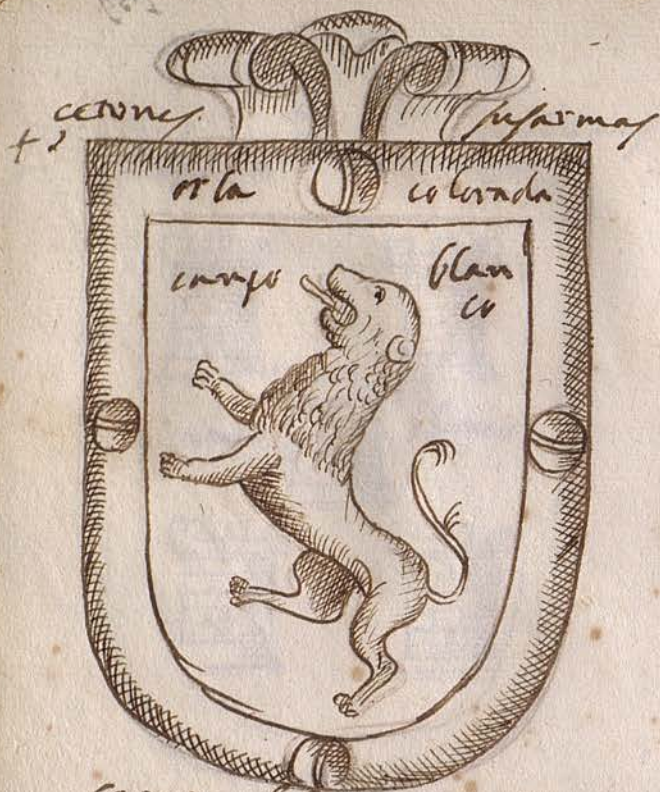 cetones sus armas
orla colorada
campo blan
co